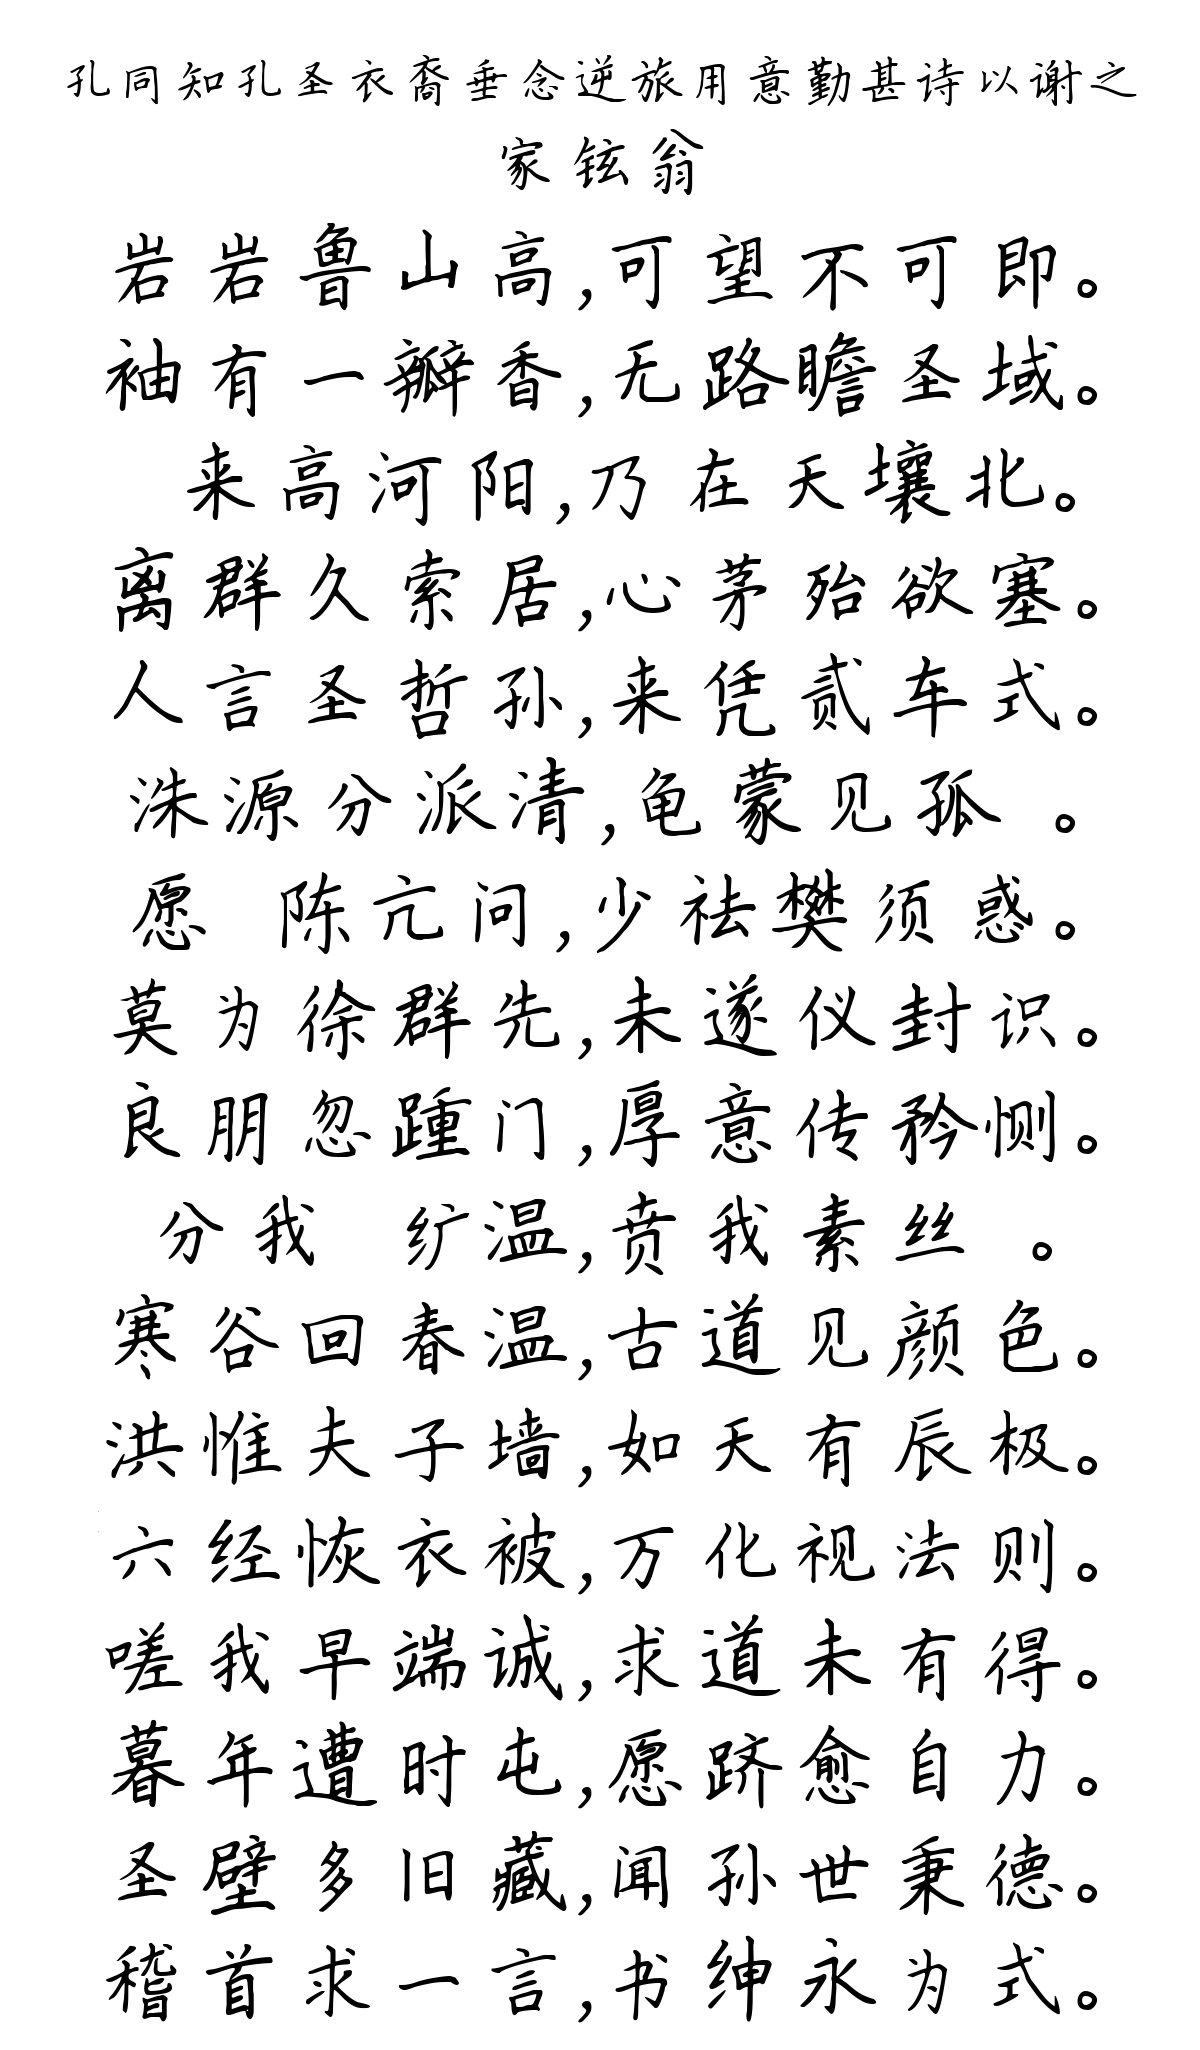 孔同知孔圣衣裔垂念逆旅用意勤甚诗以谢之
家铉翁
岩岩鲁山高,可望不可即。
袖有一瓣香,无路瞻圣域。
来高河阳,乃在天壤北。
离群久索居,心茅殆欲塞。
人言圣哲孙,来凭贰车式。
洙源分派清,龟蒙见孤 。
愿 陈亢问,少祛樊须惑。
莫为徐群先,未遂仪封识。
良朋忽踵门,厚意传矜恻。
分我 纩温,贲我素丝 。
寒谷回春温,古道见颜色。
洪惟夫子墙,如天有辰极。
六经恢衣被,万化视法则。
嗟我早端诚,求道未有得。
暮年遭时屯,愿跻愈自力。
圣壁多旧藏,闻孙世秉德。
稽首求一言,书绅永为式。